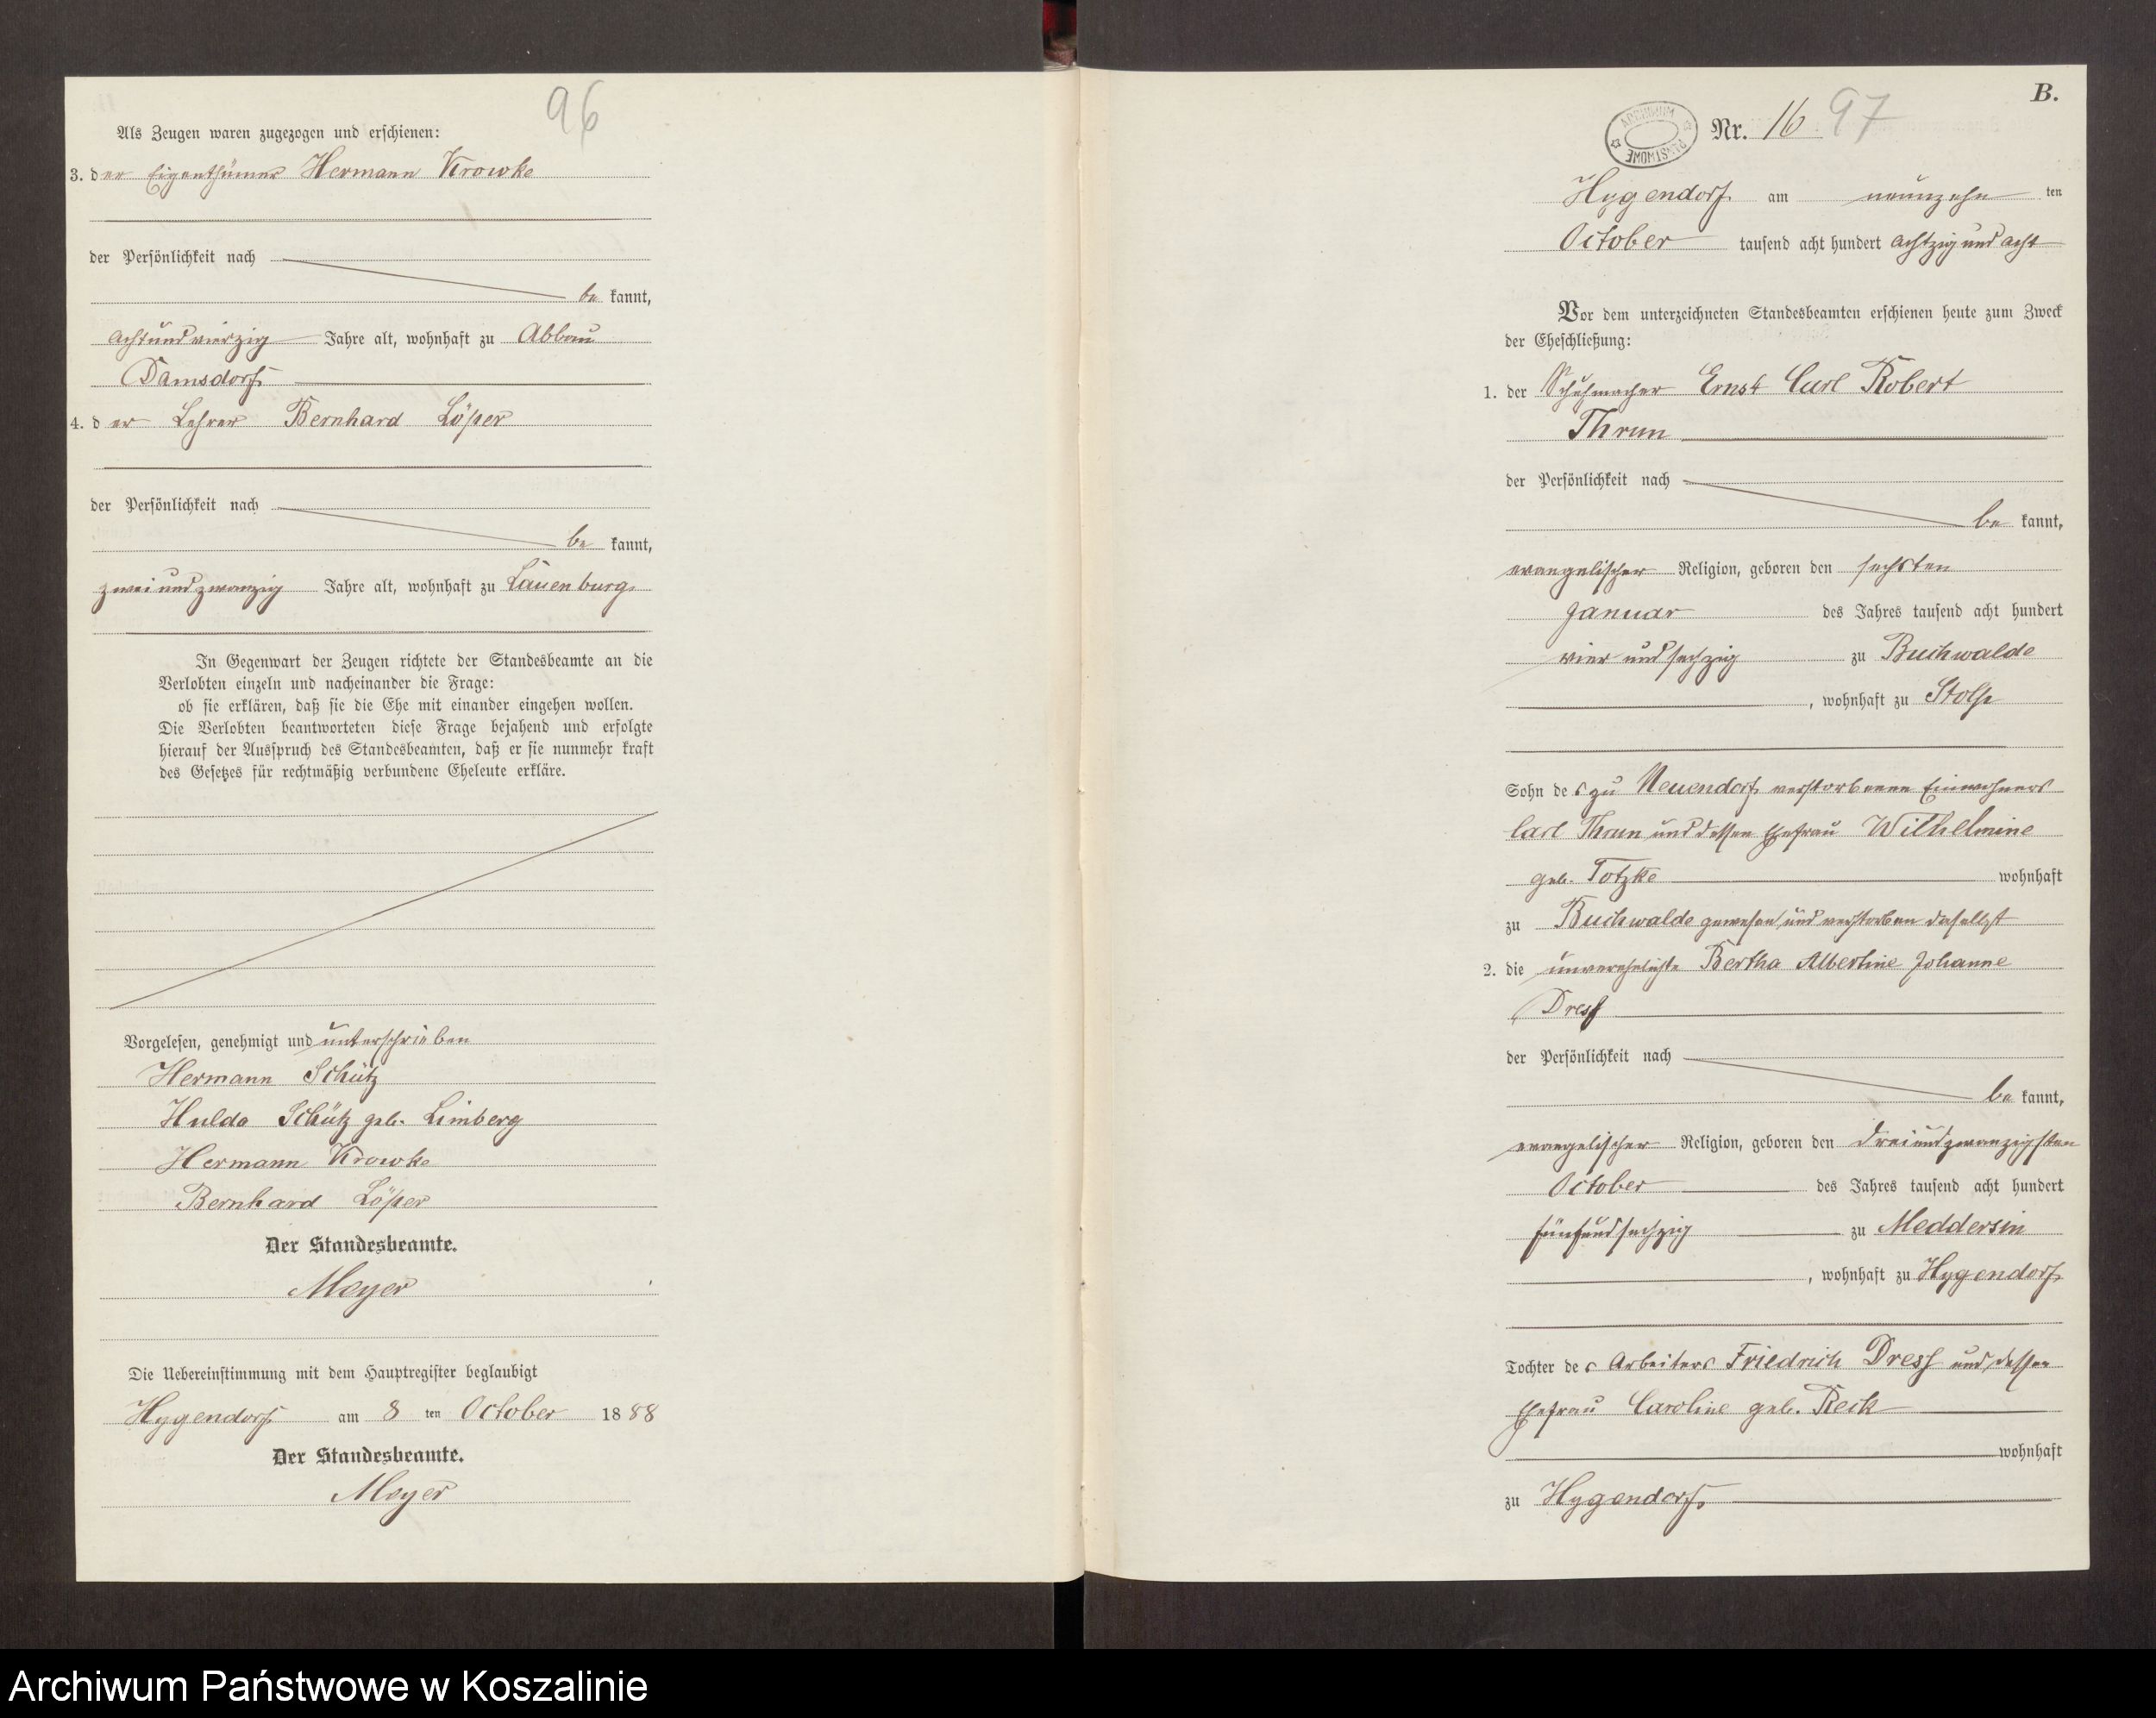 96
Als Zeugen waren zugezogen und erschienen:
3. der Eigenthümer Hermann Krowke
der Persönlichkeit nach
be kannt,
achtundvierzig Jahre alt, wohnhaft zu Abbau
Damsdorf
4. der Lehrer Bernhard Löper
der Persönlichkeit nach
be kannt,
zweiundzwanzig Jahre alt, wohnhaft zu Lauenburg
In Gegenwart der Zeugen richtete der Standesbeamte an die
Verlobten einzeln und nacheinander die Frage:
ob sie erklären, daß sie die Ehe mit einander eingehen wollen.
Die Verlobten beantworteten diese Frage bejahend und erfolgte
hierauf der Ausspruch des Standesbeamten, daß er sie nunmehr kraft
des Gesetzes für rechtmäßig verbundene Eheleute erkläre.
Vorgelesen, genehmigt und unterschrieben
Hermann Schütz
Hulda Schütz geb. Limberg
Hermann Krowke
Bernhard Löper
Der Standesbeamte.
Meyer
Die Uebereinstimmung mit dem Hauptregister beglaubigt
Hygendorf am 8 ten October 1888
Der Standesbeamte.
Meyer
B.
ARCHIWUM PAŃSTWOWE
Nr. 16 97
Hygendorf am neunzehn ten
October tausend acht hundert achtzig und acht
Vor dem unterzeichneten Standesbeamten erschienen heute zum Zweck
der Eheschließung:
1. der Schuhmacher Ernst Carl Robert
Thrun
der Persönlichkeit nach
be kannt,
evangelischer Religion, geboren den sechsten
Januar des Jahres tausend acht hundert
vier und sechzig zu Buchwalde
, wohnhaft zu Stolp
Sohn des zu Neuendorf verstorbenen Einwohners
Carl Thrun und dessen Ehefrau Wilhelmine
geb. Totzke wohnhaft
zu Buchwalde gewesen und verstorben daselbst
2. die unverehelichte Bertha Albertine Johanne
Dress
der Persönlichkeit nach
be kannt,
evangelischer Religion, geboren den dreiundzwanzigsten
October des Jahres tausend acht hundert
fünfundsechzig zu Meddersin
, wohnhaft zu Hygendorf
Tochter des Arbeiters Friedrich Dress und dessen
Ehefrau Caroline geb. Reck
wohnhaft
zu Hygendorf
Archiwum Państwowe w Koszalinie